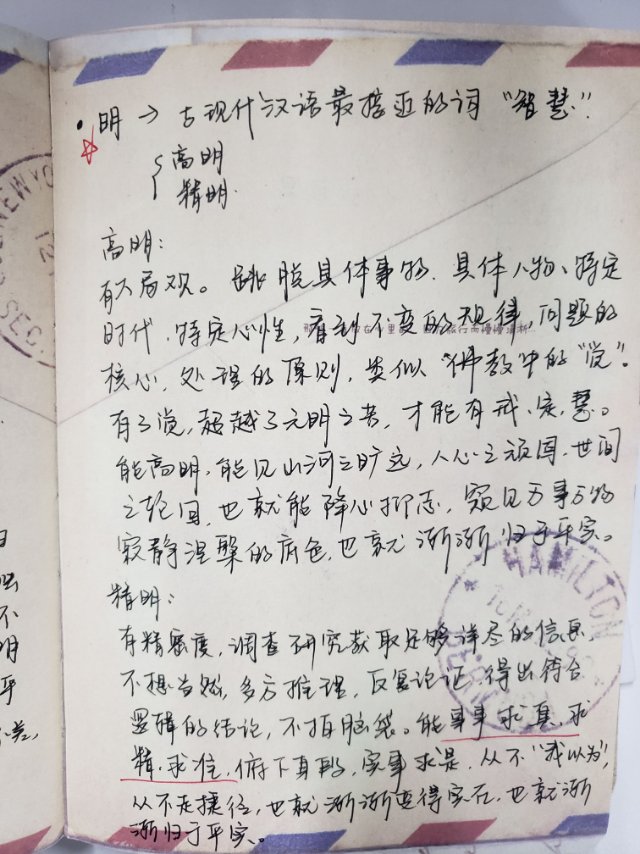 明 → 古现代汉语最接近的词 “智慧”.
高明
精明.
高明:
有大局观。跳脱具体事物. 具体人物、特定
时代. 特定心性, 看到不变的规律, 问题的
核心, 处理的原则, 类似 “佛教”中的 “觉”.
有了觉, 超越了无明之苦, 才能有戒、定、慧。
能高明, 能见山河之旷远, 人心之顽固, 世间
之轮回, 也就能降心抑志, 窥见万事万物
寂静涅槃的底色, 也就渐渐归于平实。
精明:
有精密度, 调查研究获取足够详尽的信息,
不想当然, 多方推理, 反复论证, 得出符合
逻辑的结论, 不拍脑袋。能事事求真、求
精、求准, 俯下身段, 实事求是, 从不“我以为”,
从不走捷径, 也就渐渐变得实在, 也就渐
渐归于平实。
NEW YO
SEC.
HAMILTON